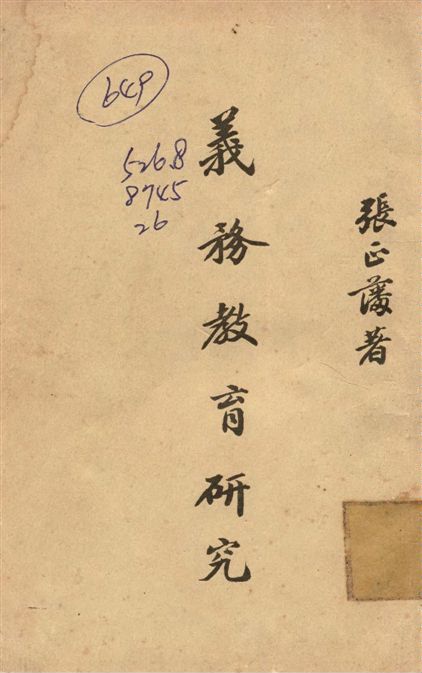 張正藩著
義務教育研究
649
526.8
8745
26